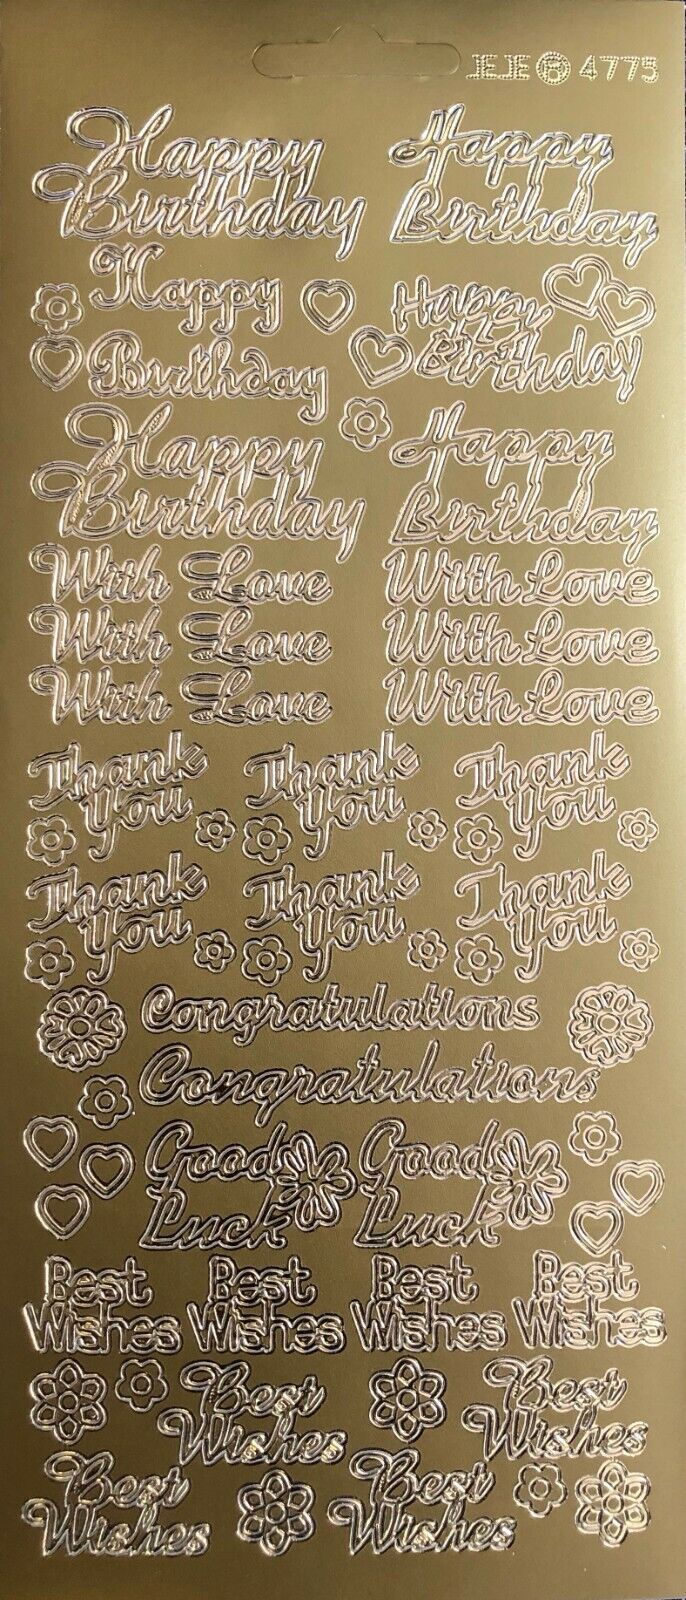 EEB 4775
Happy Happy
Birthday Birthday
Happy Happy
Birthday Birthday
Happy Happy
Birthday Birthday
With Love With Love
With Love With Love
With Love With Love
Thank Thank Thank
You You You
Thank Thank Thank
You You You
Congratulations
Congratulations
Good Good
Luck Luck
Best Best Best Best
Wishes Wishes Wishes Wishes
Best Best
Wishes Wishes
Best Best
Wishes Wishes